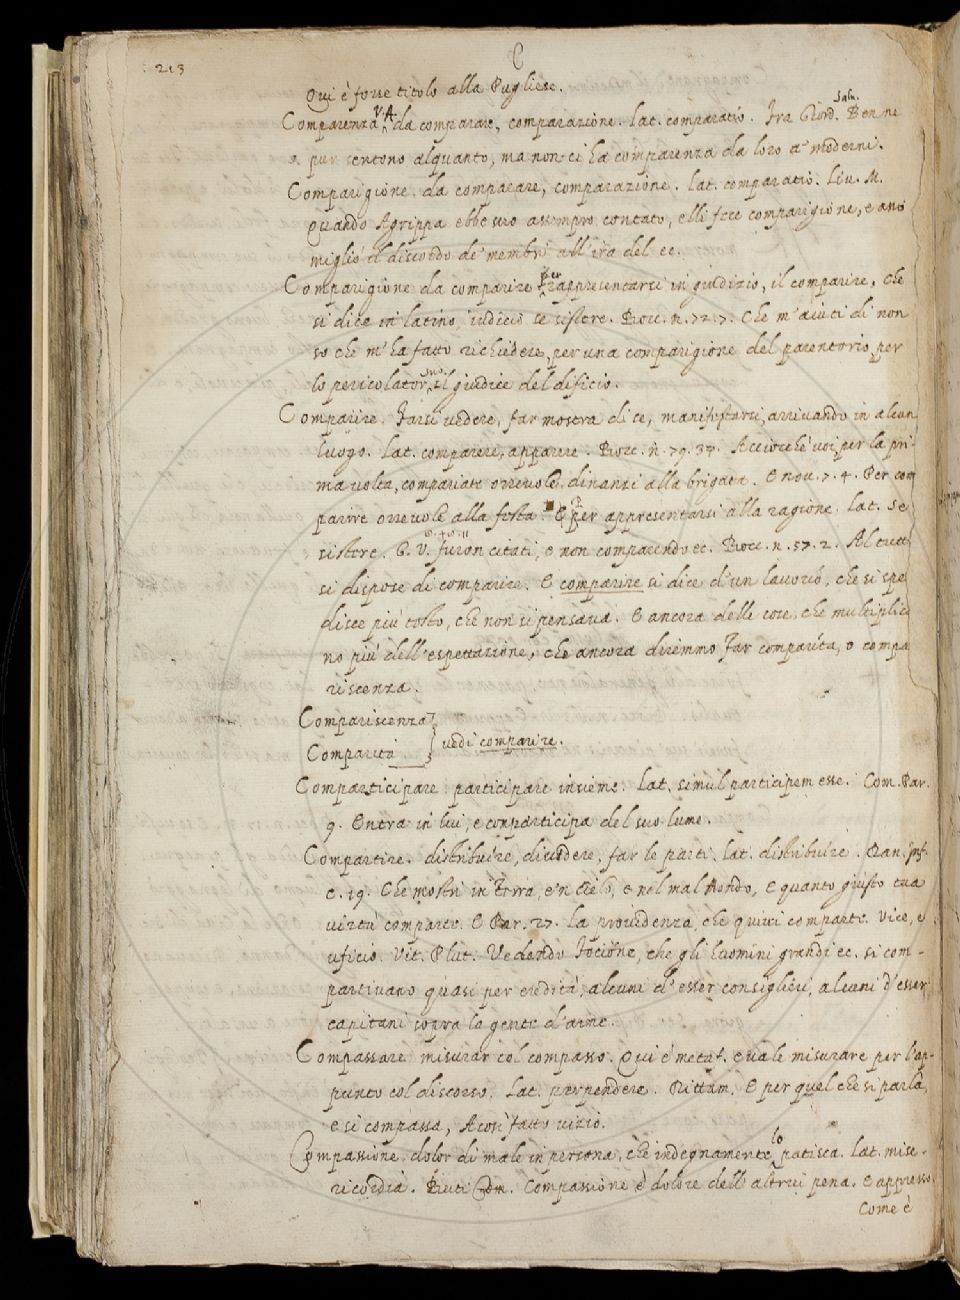 213
C
Qui è forse titolo alla Pugliese.
Comparenza V.A. da comparare, comparazione. Lat. comparatio. Fra Giord. Salu. Benne
pur sentono alquanto, ma non ci ha comparenza da loro a' moderni.
Comparigione. da comparare, comparazione. Lat. comparatio. Liu. M.
Quando Agrippa ebbe suo assempro contato, elli fece comparigione, e asso
migliò il discordo de' membri all'ira del ec.
Comparigione da comparire per rappresentarsi in giudizio, il comparire, che
si dice in latino, iudicio se sistere. Bocc. n. 72. 7. Che m'aiuti di non
so che m'ha fatto richiedere, per una comparigione del parentorio per
lo pericolator suo il giudice del dificio.
Comparire. Farsi uedere, far mostra di se, manifestarsi, arriuando in alcun
luogo. Lat. comparere, apparere. Bocc. n. 79. 37. Acciocchè uoi per la pri
ma uolta, compariate orreuole dinanzi alla brigata. E nou. 7. 4. Per com
parire orreuole alla festa. E per appresentarsi alla ragione. Lat. se
sistere. G. V. furon citati, e non comparendo ec. Bocc. n. 57. 2. Al tutto
si dispose di comparire. E comparire si dice d'un lauorio, che si spe
disce più tosto, che non si pensaua. E ancora delle cose, che multiplica
no più dell'espettazione, che ancora diremmo Far comparita, o compa
riscenza.
Compariscenza
Comparita } uedi comparire.
Comparticipare. participare insieme. Lat. simul participem esse. Com. Par.
9. Entra in lui, e conparticipa del suo lume.
Compartire. distribuire, diuidere, far le parti. Lat. distribuire. Dan. Inf.
c. 19. Che mostri in Terra, e'n cielo, e nel mal Mondo, E quanto giusto tua
uirtù comparte. E Par. 27. La prouidenza, che quiui comparte. Vice, e
uficio. Vit. Plut. Vedendo Focione, che gli huomini grandi ec. si com-
partiuano quasi per eredità, alcuni d'esser consiglieri, alcuni d'esser
capitani sopra la gente d'arme.
Compassare. misurar col compasso. Qui è metaf. e uale misurare per l'ap-
punto col discorso. Lat. perpendere. Pittam. E per quel che si parla,
e si compassa, A così fatto uizio.
Compassione. dolor di male in persona, che indegnamente lo patisca. Lat. mise-
ricordia. Buti Com. Compassione è dolore dell'altrui pena. E appresso.
Come è